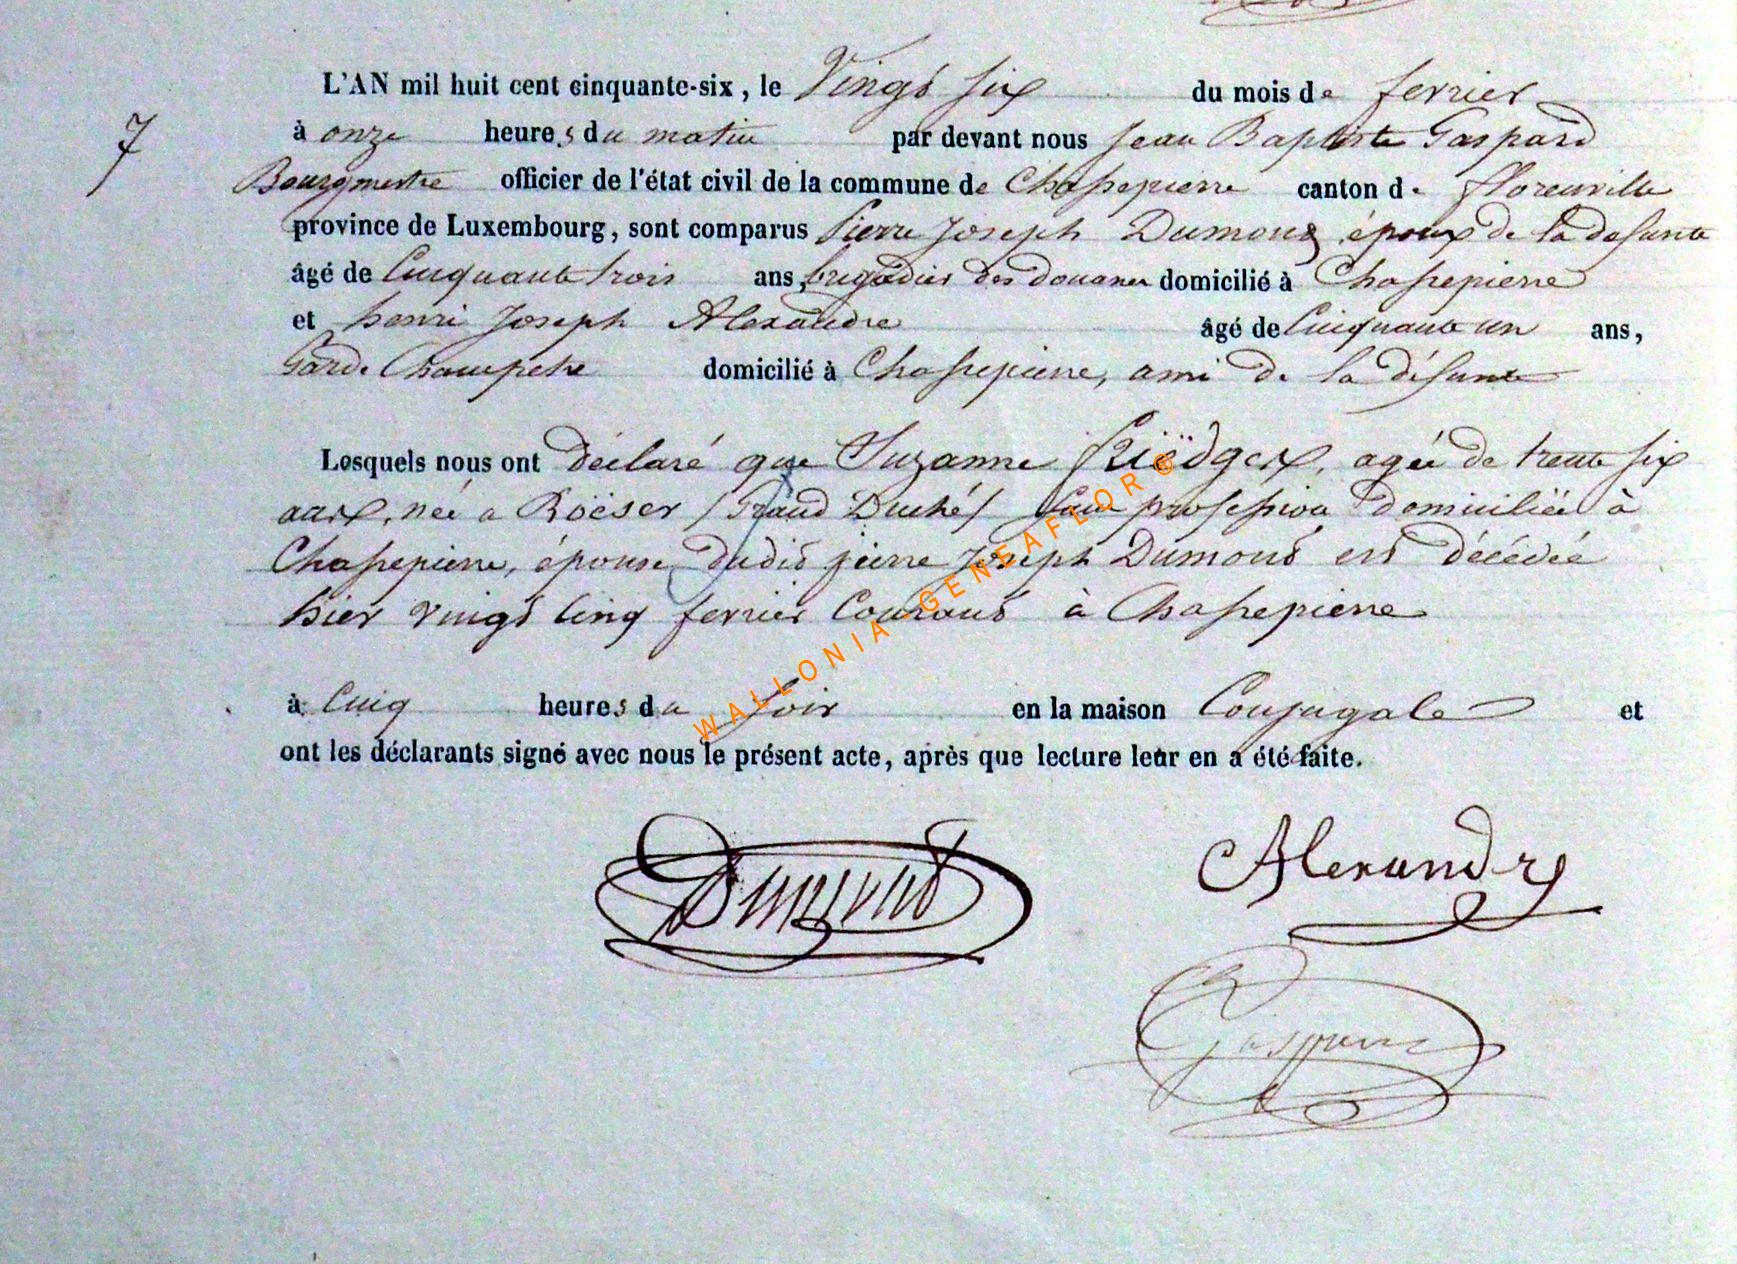 L'AN mil huit cent cinquante-six, le Vingt six du mois de fevrier
7
à onze heures du matin par devant nous Jean Baptiste Gaspard
Bourgmestre officier de l'état civil de la commune de Chassepierre canton de florenville
province de Luxembourg, sont comparus Pierre Joseph Dumont, époux de la défunte
âgé de Cinquante trois ans, brigadier des douanes domicilié à Chassepierre
et henri Joseph Alexandre âgé de Cinquante un ans,
Garde Champetre domicilié à Chassepierre, ami de la défunte
Lesquels nous ont déclaré que Suzanne agée de trente six
ans, née a Roëser (Grand Duché) sans profession domiciliée à
Chassepierre, épouse dudit pierre Joseph Dumont est décédée
hier vingt cinq fevrier Courant à Chassepierre
à Cinq heures du Soir en la maison Conjugale et
ont les déclarants signé avec nous le présent acte, après que lecture leur en a été faite.
WALLONIA - GENEAFLOR ©
Dumont
Alexandre
Gaspard